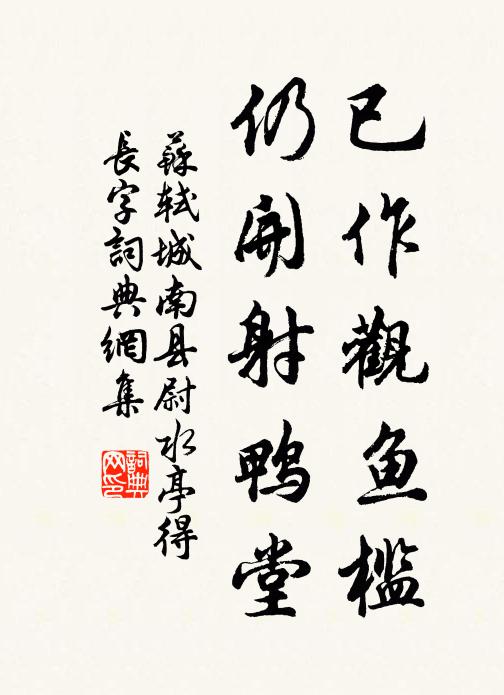 已作觀鱼檻
仍開射鴨堂
蘇轼城南县尉水亭得
長字詞典網集
詞典
网印